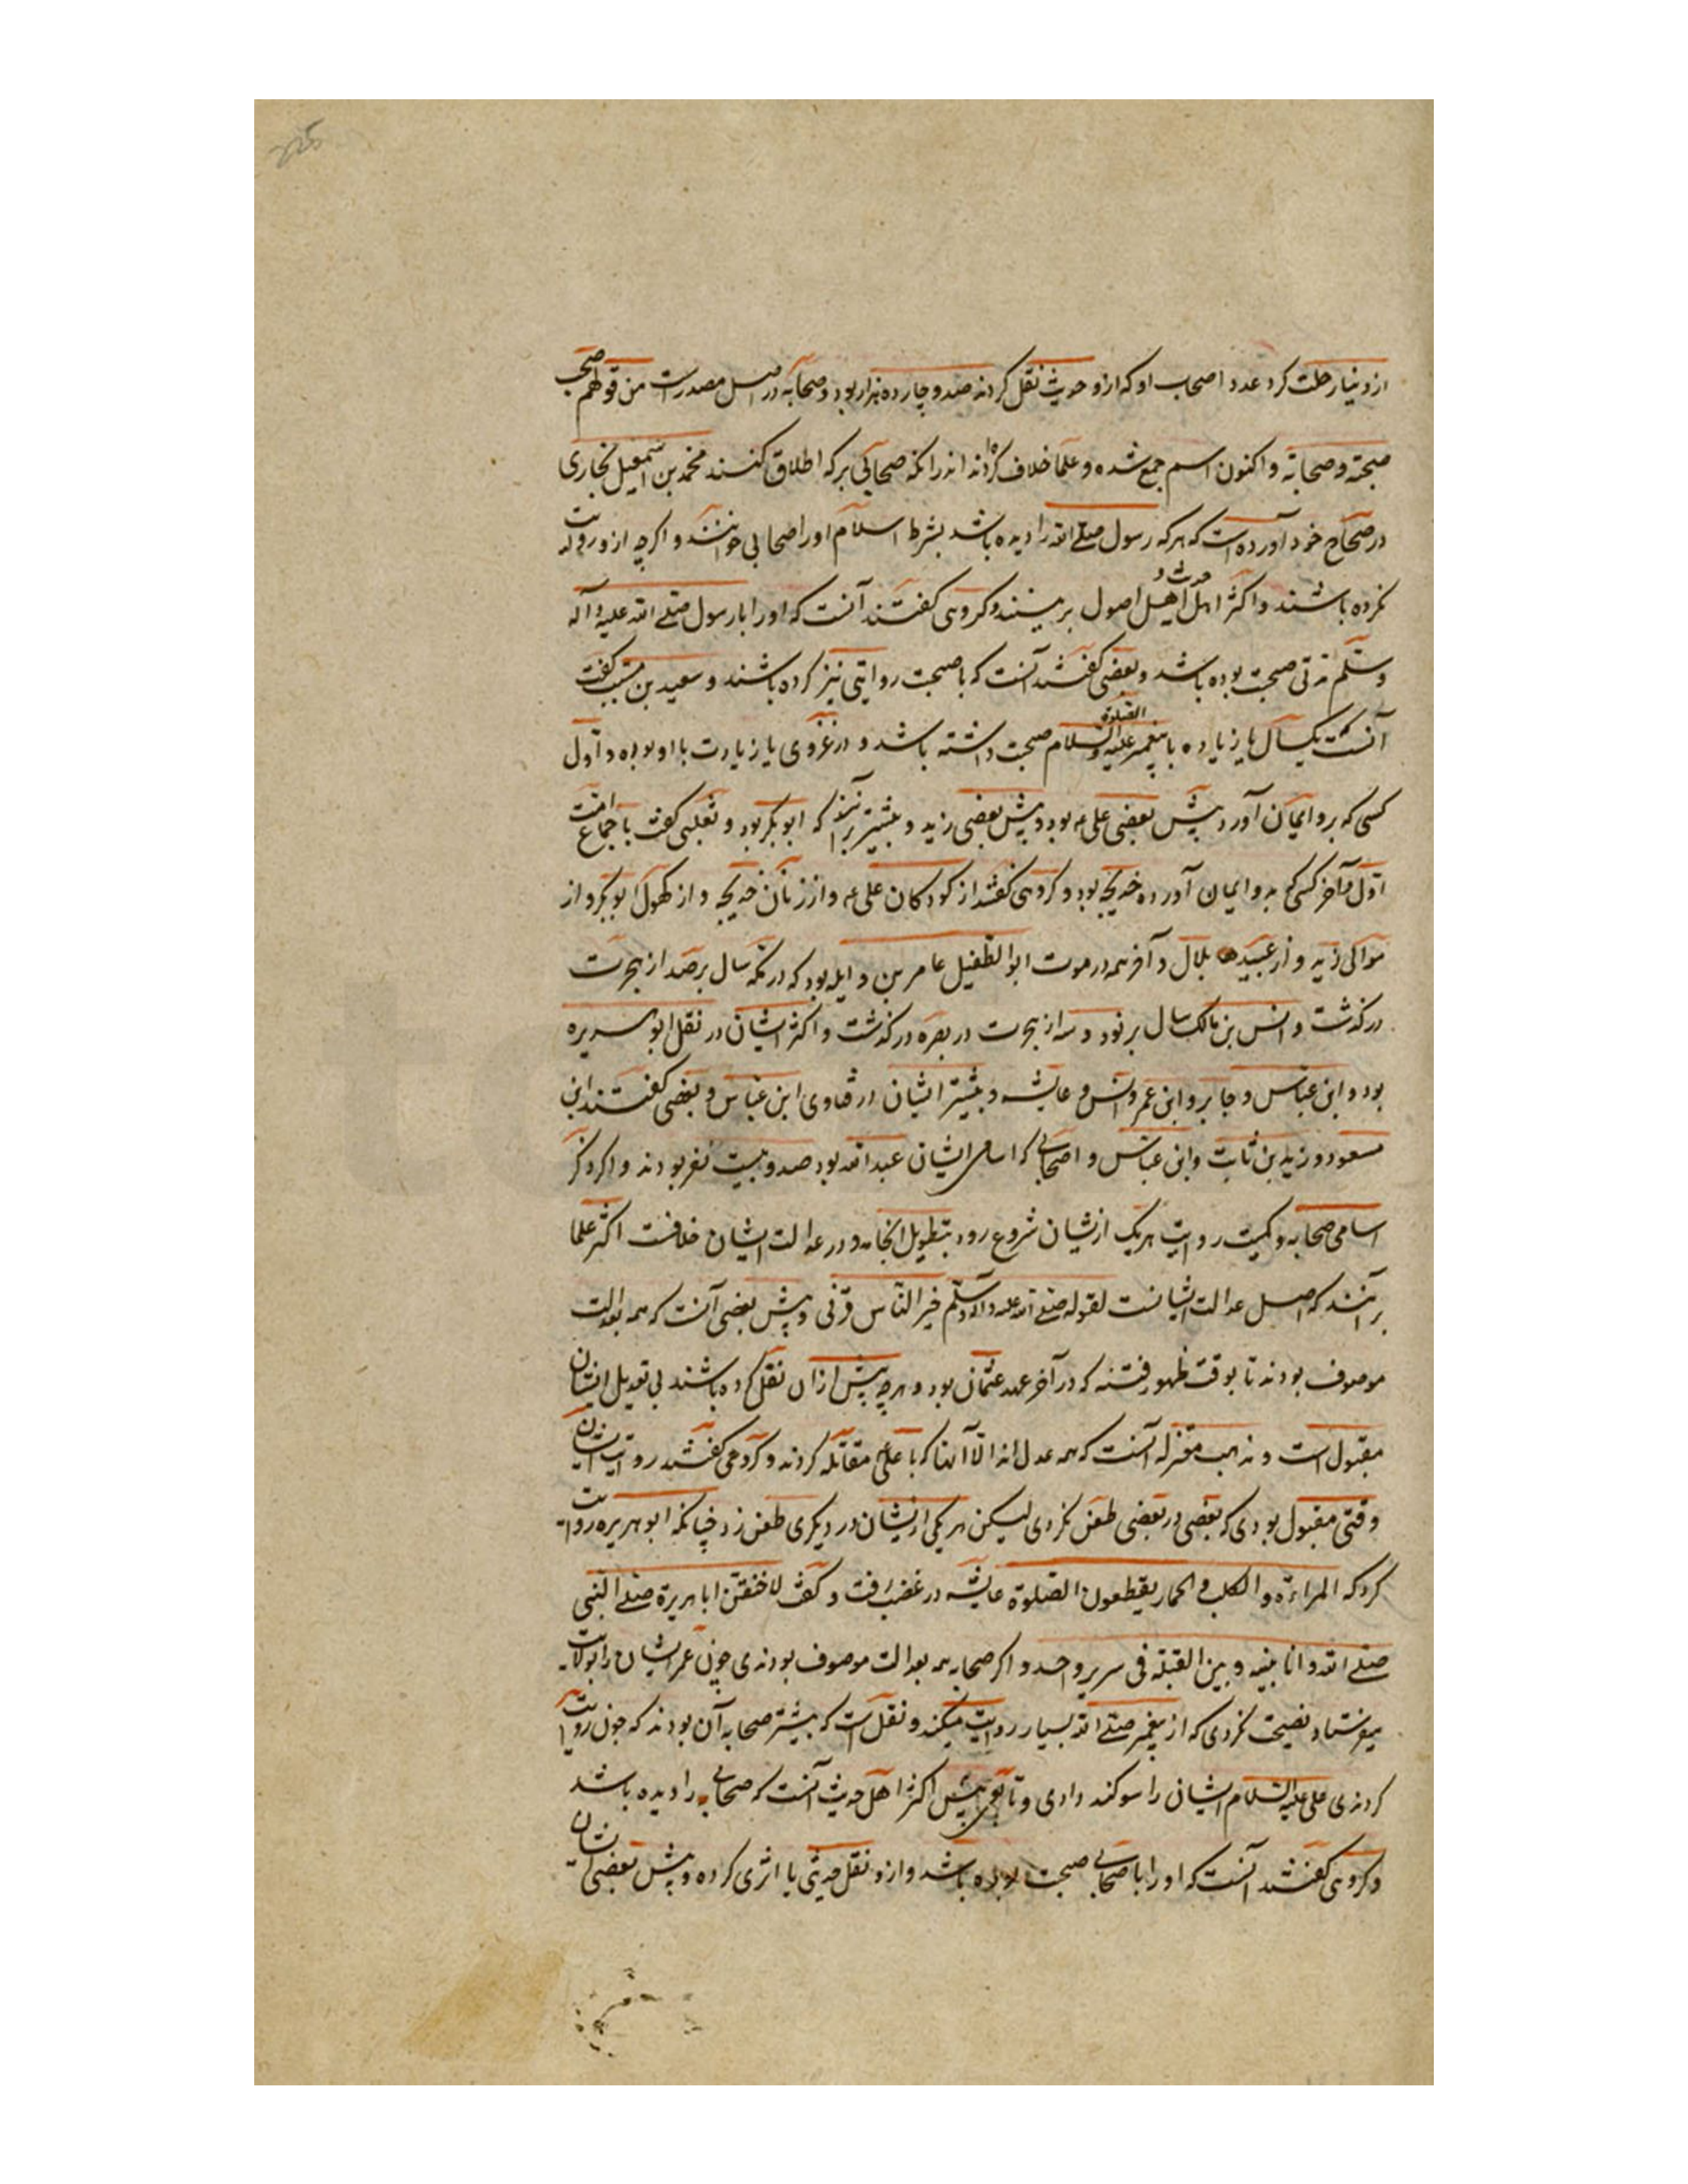 از دنیا رحلت کرد عدد اصحاب او که ازو حدیث نقل کردند صد و چارده هزار بود و صحابه در اصل مصدرست من قولهم صحب
صحبته و صحابة و اکنون اسم جمع شده و علما خلاف کرده‌اند اندرانکه صحابی برکه اطلاق کنند محمد بن اسمعیل بخاری
در صحاح خود آورده است که هرکه رسول صلی الله را دیده باشد بشرط اسلام او را صحابی خوانند و اگرچه ازو روایت
نکرده باشند و اکثر اهل حدیث و اهل اصول برینند و کروهی کفتند آنست که او را با رسول صلی الله علیه و آله
وسلم مدتی صحبت بوده باشد و بعضی کفتند آنست که با صحبت روایتی نیز کرده باشند و سعید بن مسیب کفت
آنست که یکسال یا زیاده با پیغمبر علیه الصلوة والسلام صحبت داشته باشد و در غزوی یا زیادت با او بوده و اول
کسی که برو ایمان آورد پیش بعضی علی بود و پیش بعضی زید و بیشتر برانند که ابوبکر بود و ثعلبی کفت باجماع امت
اول و آخر کسی که برو ایمان آورده خدیجه بود و کروهی کفتند از کودکان علی و از زنان خدیجه و از کهول ابوبکر و از
موالی زید و از عبید بلال و آخر همه در موت ابو الطفیل عامر بن وایله بود که در نکه سال بر صد از هجرت
درکذشت و انس بن مالک سال بر نود و سه از هجرت در بصره درکذشت و اکثر ایشان در نقل ابو هریره
بود و ابن عباس و جابر و ابن عمر و انس و عایشه و بیشتر ایشان در فتاوی ابن عباس و بعضی کفتند ابن
مسعود و زید بن ثابت و ابن عباس و اصحابی که اسامی ایشان عبدالله بود صد و بیست نفر بودند و اکر ذکر
اسامی صحابه و کمیت روایت هریک ازیشان شروع رود بتطویل انجامد و در عدالت ایشان خلافست اکثر علما
برآنند که اصل عدالت ایشانست لقوله صلی الله علیه و آله وسلم خیر الناس قرنی و پیش بعضی آنست که همه بعدالت
موصوف بودند تا بوقت ظهور فتنه که در آخر عهد عثمان بود و هرچه پیش ازان نقل کرده باشند بی تعدیل ایشان
مقبول است و مذهب معتزله آنست که همه عدل‌اند الا آنها که با علی مقاتله کردند و کروهی کفتند روایت ایشان
وقتی مقبول بودی که بعضی در بعضی طعن نکردی لیکن هر یکی ازیشان در دیکری طعن زد چنانکه ابو هریره روایت
کرد که المراءة و الکلب و الحمار یقطعون الصلوة عایشه در غضب رفت و کفت لاخنقن ابا هریرة صلی النبی
صلی الله و انا بینه و بین القبلة فی سریر واحد و اکر صحابه همه بعدالت موصوف بودندی چون عمر ایشان را بولایت
میفرستاد نصیحت نکردی که از پیغمبر صلی الله بسیار روایت میکنند و نقل است که بیشتر صحابه آن بودند که چون روایت
کردندی علی علیه السلام ایشان را سوکند دادی و تابعی پیش اکثر اهل حدیث آنست که صحابی را دیده باشد
و کروهی کفتند آنست که او را با صحابی صحبت بوده باشد و ازو نقل حدیثی یا اثری کرده و پیش بعضی ایشان